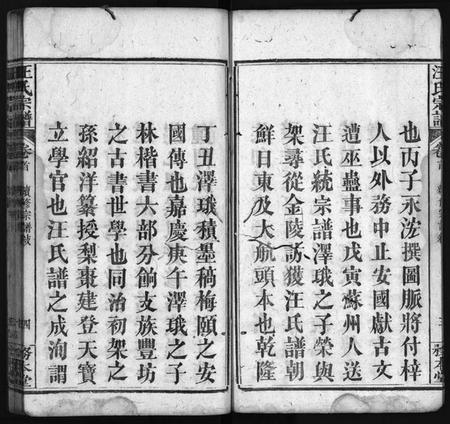 汪氏宗譜
卷首
也丙子永浤撰圖脈將付梓
人以外務中止安國獻古文
遭巫蠱事也戊寅蘇州人送
汪氏統宗譜澤珴之子榮與
架尋從金陵訪獲汪氏譜朝
鮮日東及大航頭本也乾隆
丁丑澤珴積墨稿梅頤之安
國傳也嘉慶庚午澤珴之子
林楷書大部分餉支族豐坊
之古書世學也同治初架之
孫紹洋纂授梨棗建登天寶
立學官也汪氏譜之成洵謂
汪氏宗譜
卷首
續修宗譜跋
四